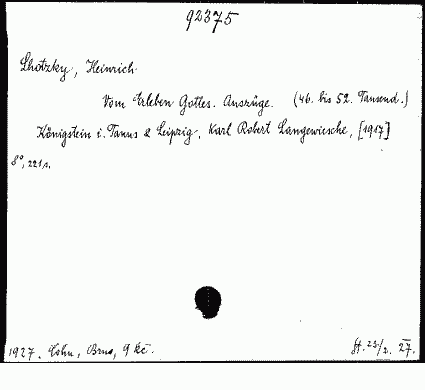 92375
Lhotzky, Heinrich
Vom Erleben Gottes. Auszüge. (46. bis 52. Tausend.)
Königstein i. Taunus & Leipzig, Karl Robert Langewiesche, [1917]
8°, 221 s.
1927. Cohn, Brno, 9 Kč. St. 23/2. 27.